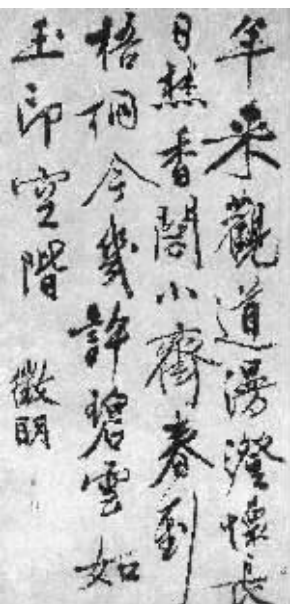 年来觀道漫澄懐長
日焚香閤小齋春到
梧桐今幾許碧雲如
玉印空階 徵明